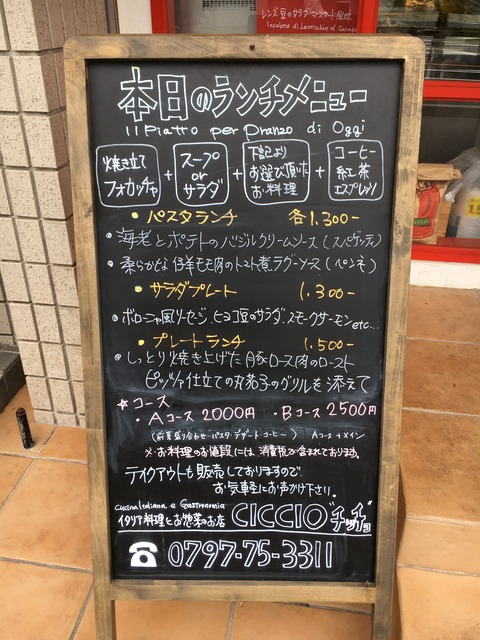 レンズ豆のサラダ マスタード風味
本日のランチメニュー
Il Piatto per Pranzo di Oggi
焼き立てフォカッチャ + スープ or サラダ + 下記よりお選び頂いたお料理 + コーヒー 紅茶 エスプレッソ
・パスタランチ 各1.300-
・海老とポテトのバジルクリームソース(スパゲッティ)
・柔らかな仔羊モモ肉のトマト煮ラグーソース(ペンネ)
・サラダプレート 1.300-
・ボローニャ風ソーセージ、ヒヨコ豆のサラダ、スモークサーモンetc...
・プレートランチ 1.500-
・しっとり焼き上げた豚ロース肉のロースト
ピッツァ仕立ての丸茄子のグリルを添えて
☆コース
・Aコース 2000円 ・Bコース 2500円
(前菜盛り合わせ・パスタ・デザート・コーヒー) Aコース+メイン
※お料理のお値段には消費税が含まれております。
テイクアウトも販売しておりますので
お気軽にお声がけ下さい。
cucina Italiana e Gastronomia
イタリア料理とお惣菜のお店 CICCIO "チッチョ"
☎ 0797-75-3311